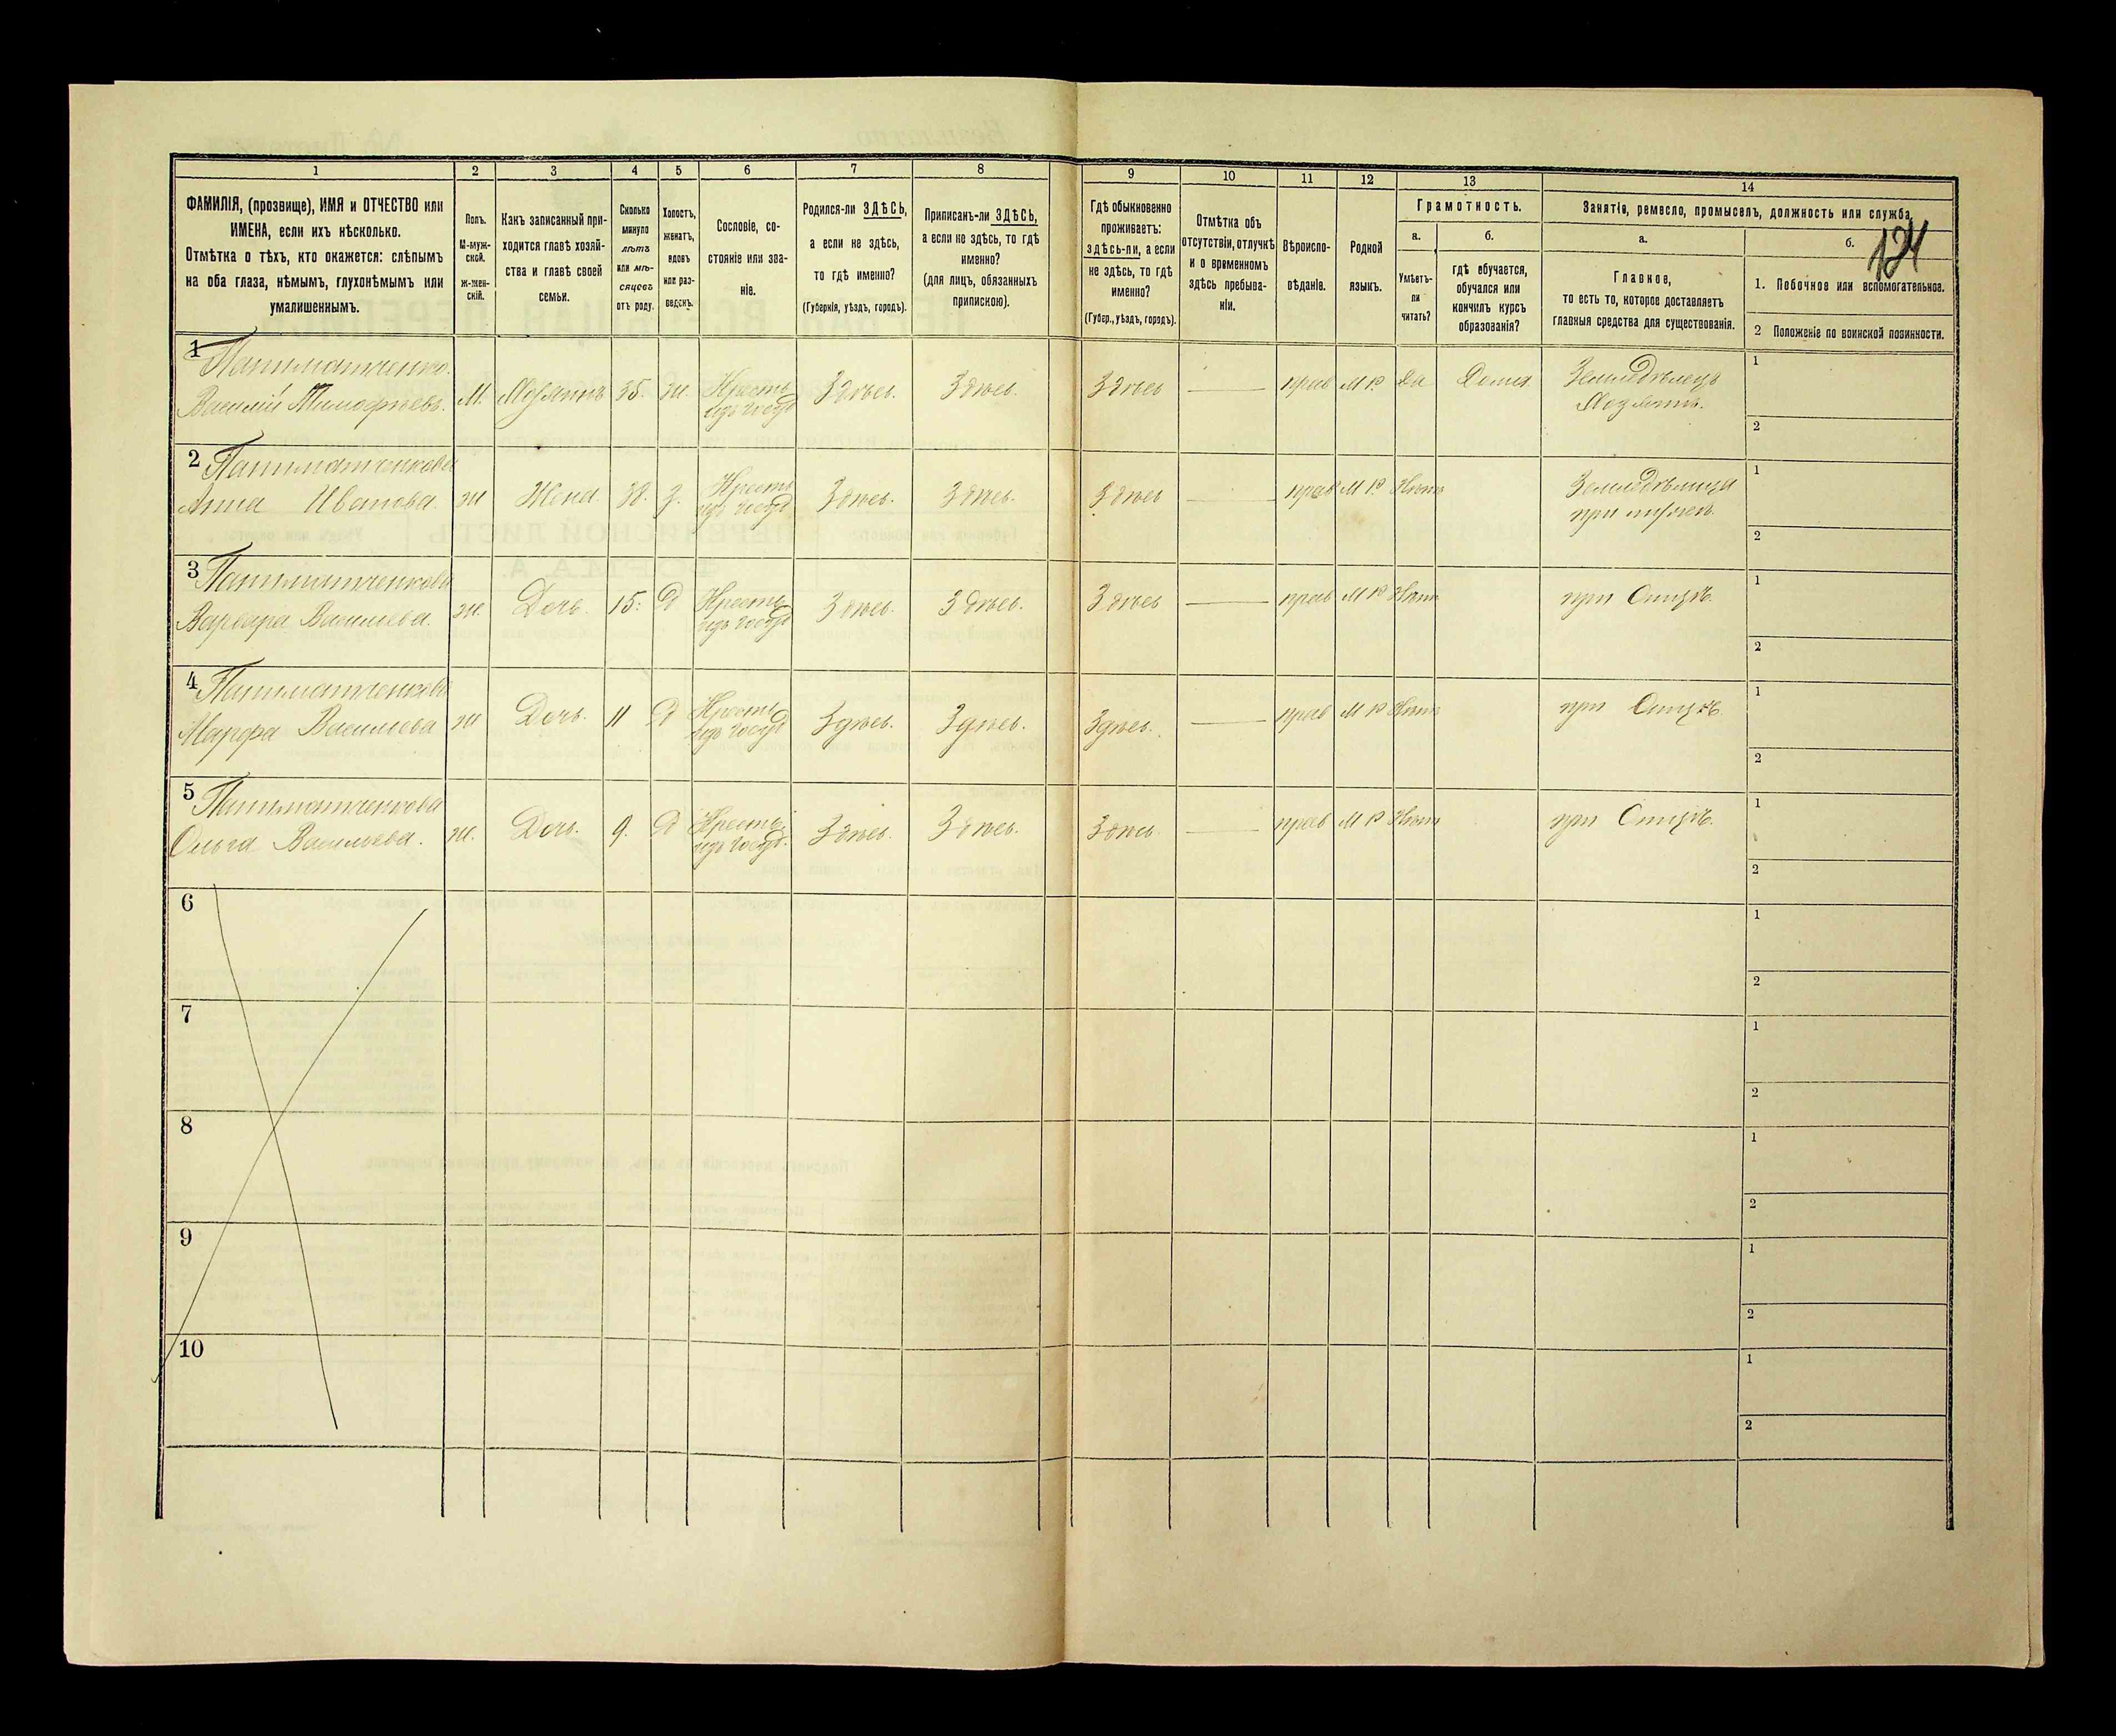 124
1
2
3
4
5
6
7
8
9
10
11
12
13
14
ФАМИЛІЯ, (прозвище), ИМЯ и ОТЧЕСТВО или
ИМЕНА, если ихъ нѣсколько.
Отмѣтка о тѣхъ, кто окажется: слѣпымъ
на оба глаза, нѣмымъ, глухонѣмымъ или
умалишеннымъ.
Полъ.
М-муж-
ской.
ж-жен-
скій.
Какъ записанный при-
ходится главѣ хозяй-
ства и главѣ своей
семьи.
Сколько
минуло
лѣтъ
или мѣ-
сяцевъ
отъ роду.
Холостъ,
женатъ,
вдовъ
или раз-
веденъ.
Сословіе, со-
стояніе или зва-
ніе.
Родился-ли ЗДѢСЬ,
а если не здѣсь,
то гдѣ именно?
(Губернія, уѣздъ, городъ).
Приписанъ-ли ЗДѢСЬ,
а если не здѣсь, то гдѣ
именно?
(для лицъ, обязанныхъ
припискою).
Гдѣ обыкновенно
проживаетъ:
здѣсь-ли, а если
не здѣсь, то гдѣ
именно?
(Губер., уѣздъ, городъ).
Отмѣтка объ
отсутствіи, отлучкѣ
и о временномъ
здѣсь пребыва-
ніи.
Вѣроиспо-
вѣданіе.
Родной
языкъ.
Грамотность.
а.
Умѣетъ-
ли
читать?
б.
гдѣ обучается,
обучался или
кончилъ курсъ
образованія?
Занятіе, ремесло, промыселъ, должность или служба.
а.
Главное,
то есть то, которое доставляетъ
главныя средства для существованія.
б.
1. Побочное или вспомогательное.
2 Положеніе по воинской повинности.
1
Василій Тимофѣевъ.
М.
Хозяинъ
35.
ж.
Крестья
изъ госуд
Здѣсь.
Здѣсь.
Здѣсь
прав
М Р.
Да
Дома
Земледѣлецъ
Хозяинъ.
1
2
2
Анна Иванова.
ж
Жена
38.
З.
Крестья
изъ госуд
Здѣсь.
Здѣсь.
Здѣсь
прав
М Р.
Нѣтъ
Земледѣлица
при мужѣ.
1
2
3
Варвара Васильева.
ж.
Дочь.
15.
Д
Крестья
изъ госуд
Здѣсь.
Здѣсь.
Здѣсь
прав
М Р
Нѣтъ
при Отцѣ.
1
2
4
Марфа Васильева
ж
Дочь.
11
Д
Крестья
изъ госуд
Здѣсь.
Здѣсь.
Здѣсь.
прав
М Р
Нѣтъ
при Отцѣ
1
2
5
Ольга Васильева.
ж.
Дочь.
9.
Д
Крестья
изъ госуд.
Здѣсь.
Здѣсь.
Здѣсь
прав
М Р
Нѣтъ
при Отцѣ.
1
2
6
1
2
7
1
2
8
1
2
9
1
2
10
1
2